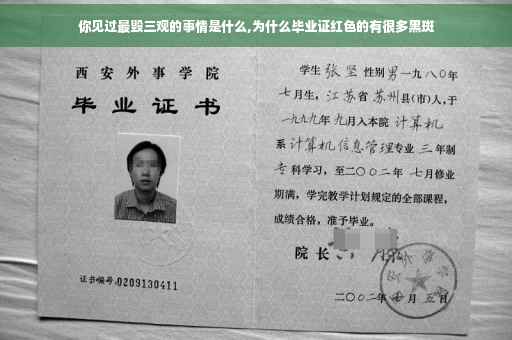 你见过最毁三观的事情是什么,为什么毕业证红色的有很多黑斑
西安外事学院
毕业证书
证书编号:0209130411
学生 张坚 性别 男 一九八〇年
七月生，江苏省 苏州县(市)人,于
一九九九年 九月入本院 计算机
系 计算机信息管理专业 三 年制
专 科学习，至二〇〇二年 七月修业
期满，学完教学计划规定的全部课程，
成绩合格，准予毕业。
院长
二〇〇二年 七 月 五 日